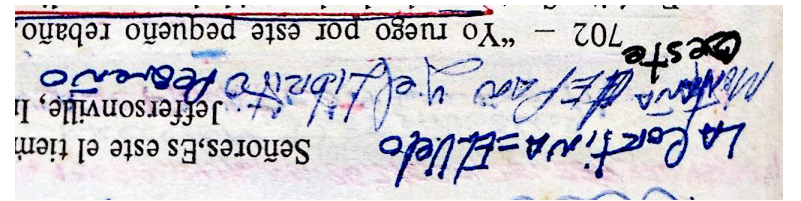 LA CORTINA = El Velo Señores.Es este el tiem
Jeffersonville, I
MONTAÑA y el LIBRITO PEQUEÑO
este
702 – “Yo ruego por este pequeño rebaño,